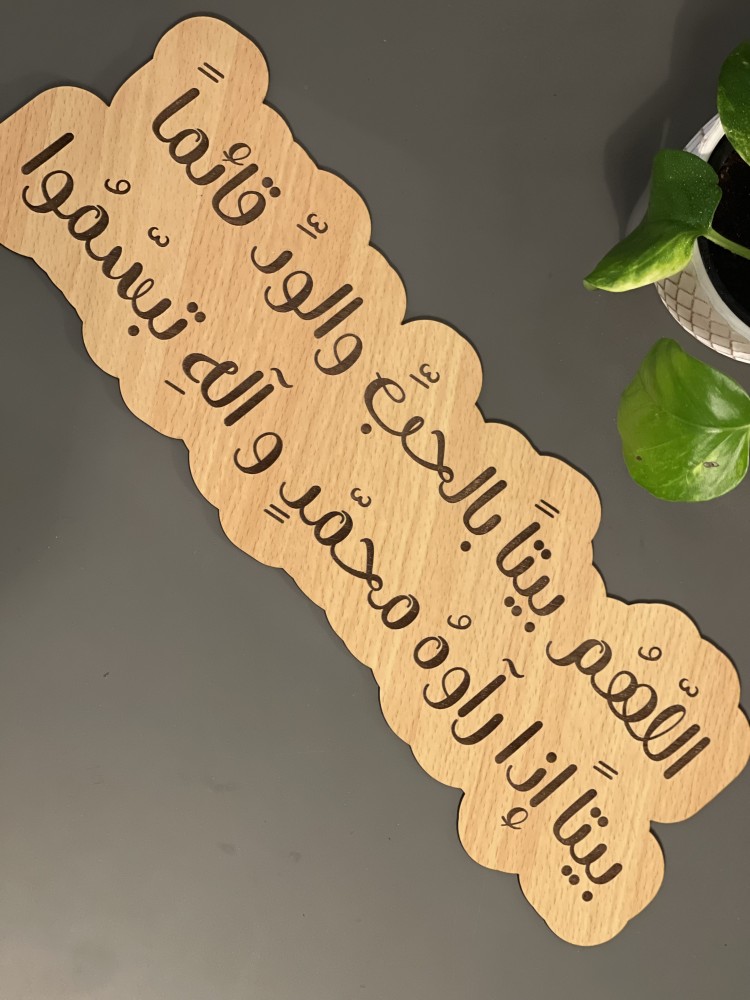 اللّهُم بيتاً بالحبِّ والورِّد قائماً
بيتاً إذا رآوهُ محمّدٍ و آلهِ تبسّمُوا